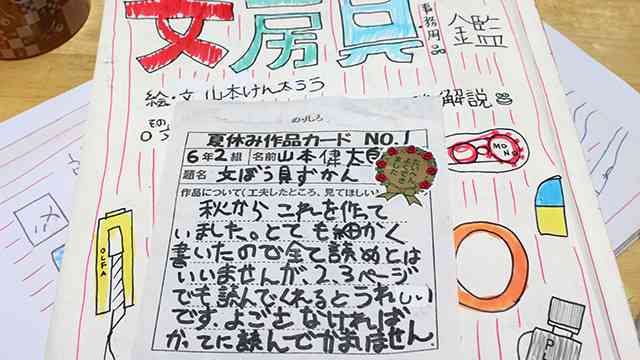 文房具
事務用品
図鑑
絵・文 山本けん太ろう
解説
のりしろ
夏休み作品カード NO.1
6年2組 名前 山本健太郎
題名 文ぼう具ずかん
作品について(工夫したところ、見てほしい
秋から これを作て
いました。とても細かく
書いたので全て読めとは
いいませんが、2.3ページ
でも読んでくれるとうれしい
です。よごさなければ
かってに読んでかまいません。
OLFA
MONO